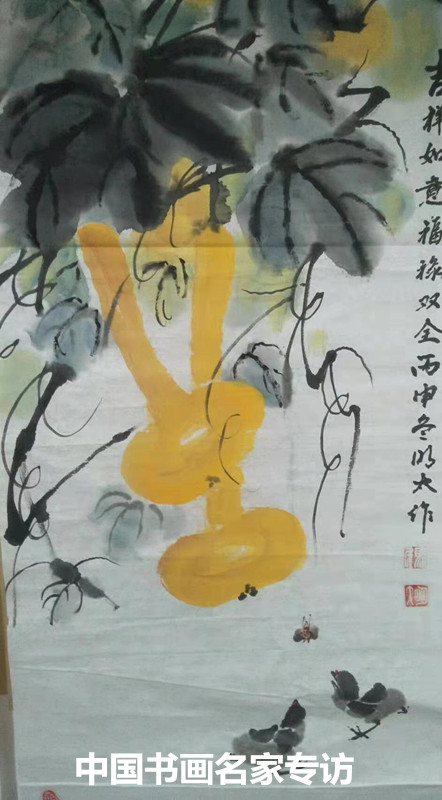 吉祥如意福禄双全丙申冬明大作
中国书画名家专访